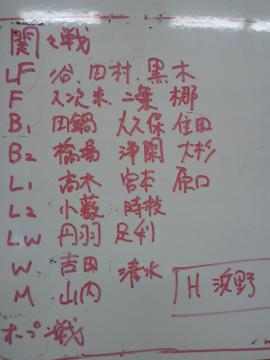 関々戦
LF 谷、田村、黒木
F 久次米、二乗 梛
B1 田鍋 大久保 住田
B2 橋場 浄閑 大杉
L1 高木 宮本 原口
L2 小薮 時枝
LW 丹羽 足利
W 吉田 清水
M 山内
H 波野
オープン戦